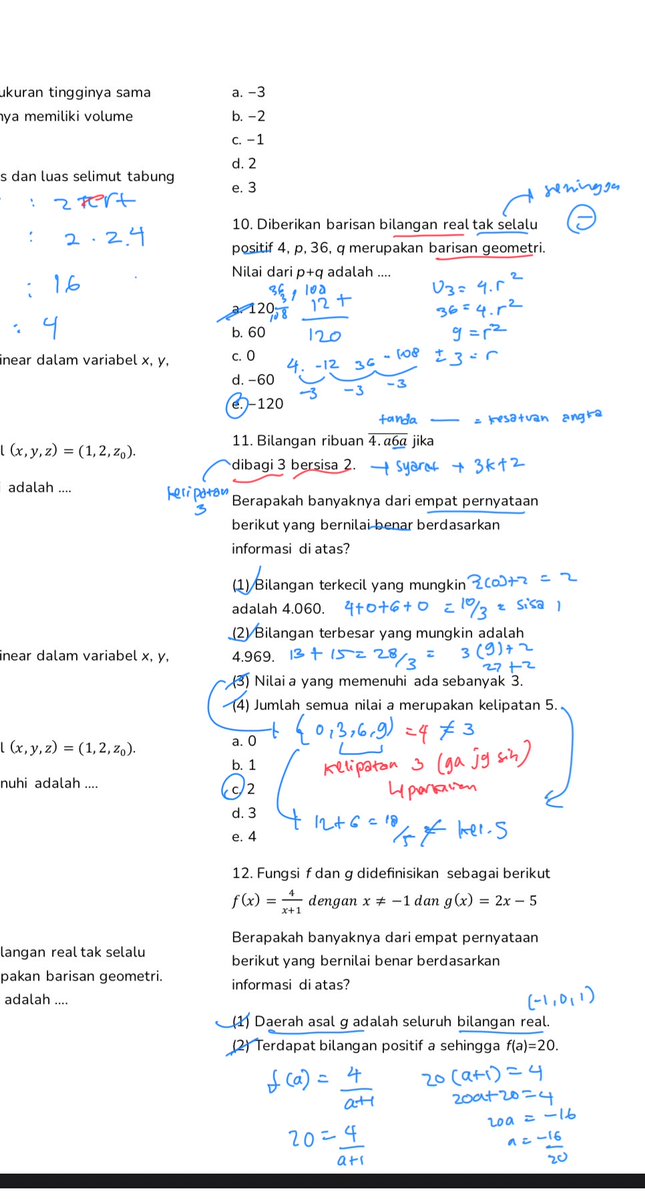 ukuran tingginya sama
nya memiliki volume
s dan luas selimut tabung
: 2 πrt
: 2 . 2.4
: 16
: 4
inear dalam variabel x, y,
l (x, y, z) = (1, 2, z₀).
adalah ....
inear dalam variabel x, y,
l (x, y, z) = (1, 2, z₀).
nuhi adalah ....
langan real tak selalu
pakan barisan geometri.
adalah ....
a. −3
b. −2
c. −1
d. 2
e. 3
sehingga
10. Diberikan barisan bilangan real tak selalu
positif 4, p, 36, q merupakan barisan geometri.
Nilai dari p+q adalah ....
a. 120
b. 60
c. 0
d. −60
e. −120
36
3
108
, 108
12 +
120
U3 = 4.r²
36 = 4.r²
9 = r²
± 3 = r
4. -12 36 - 108
-3 -3 -3
tanda — = kesatuan angka
11. Bilangan ribuan 4.a6a jika
dibagi 3 bersisa 2. → syarat → 3k+2
kelipatan
3
Berapakah banyaknya dari empat pernyataan
berikut yang bernilai benar berdasarkan
informasi di atas?
(1) Bilangan terkecil yang mungkin 3(0)+2 = 2
adalah 4.060. 4+0+6+0 = 10/3 = sisa 1
(2) Bilangan terbesar yang mungkin adalah
4.969. 13 + 15 = 28/3 = 3(9)+2
27+2
(3) Nilai a yang memenuhi ada sebanyak 3.
(4) Jumlah semua nilai a merupakan kelipatan 5.
{0,3,6,9) = 4 ≠ 3
kelipatan 3 (ga jg sih)
a. 0
b. 1
c. 2
d. 3
e. 4
12+6 = 18/5 ≠ kel.5
12. Fungsi f dan g didefinisikan sebagai berikut
f(x) = 4/(x+1) dengan x ≠ −1 dan g(x) = 2x − 5
Berapakah banyaknya dari empat pernyataan
berikut yang bernilai benar berdasarkan
informasi di atas?
(-1,0,1)
(1) Daerah asal g adalah seluruh bilangan real.
(2) Terdapat bilangan positif a sehingga f(a)=20.
f(a) = 4/(a+1)
20 = 4/(a+1)
20(a+1) = 4
20a+20 = 4
20a = -16
a = -16/20